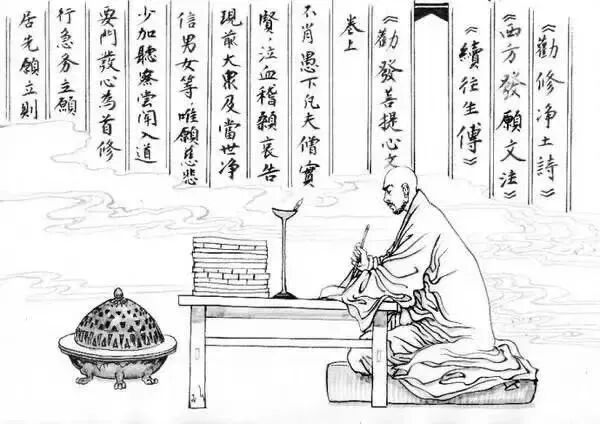 《勸修净土詩》
《西方發願文注》
《續往生傳》
《勸發菩提心文
卷上
不肖愚下凡夫僧實
賢，泣血稽顙哀告
現前大衆及當世净
信男女等，唯願慈悲
少加聽察嘗聞入道
要門發心為首修
行急務立願
居先願立則